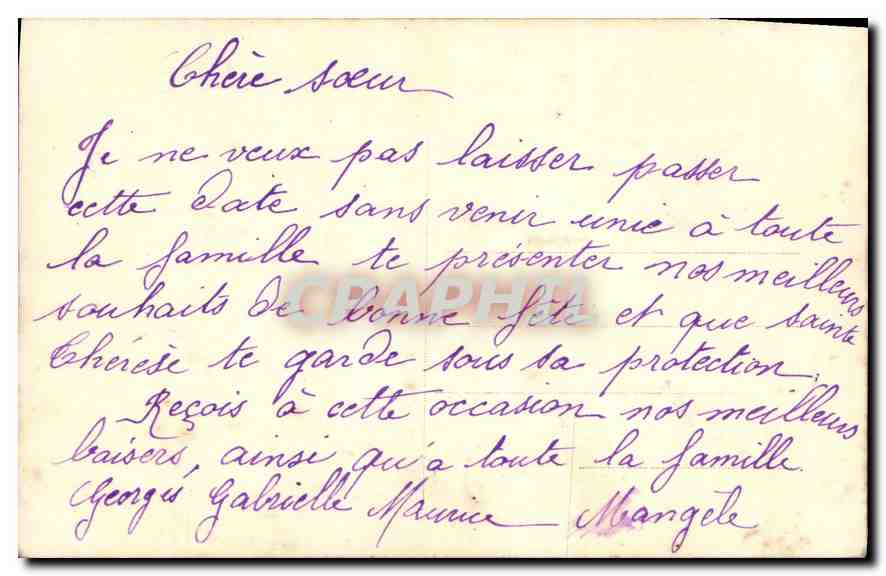 Chère sœur
Je ne veux pas laisser passer
cette date sans venir unie à toute
la famille te présenter nos meilleurs
souhaits de bonne fête et que sainte
Thérèse te garde sous sa protection.
Reçois à cette occasion nos meilleurs
baisers, ainsi qu'a toute la famille
Georges Gabrielle Maurice Mangèle
CPAPHIL